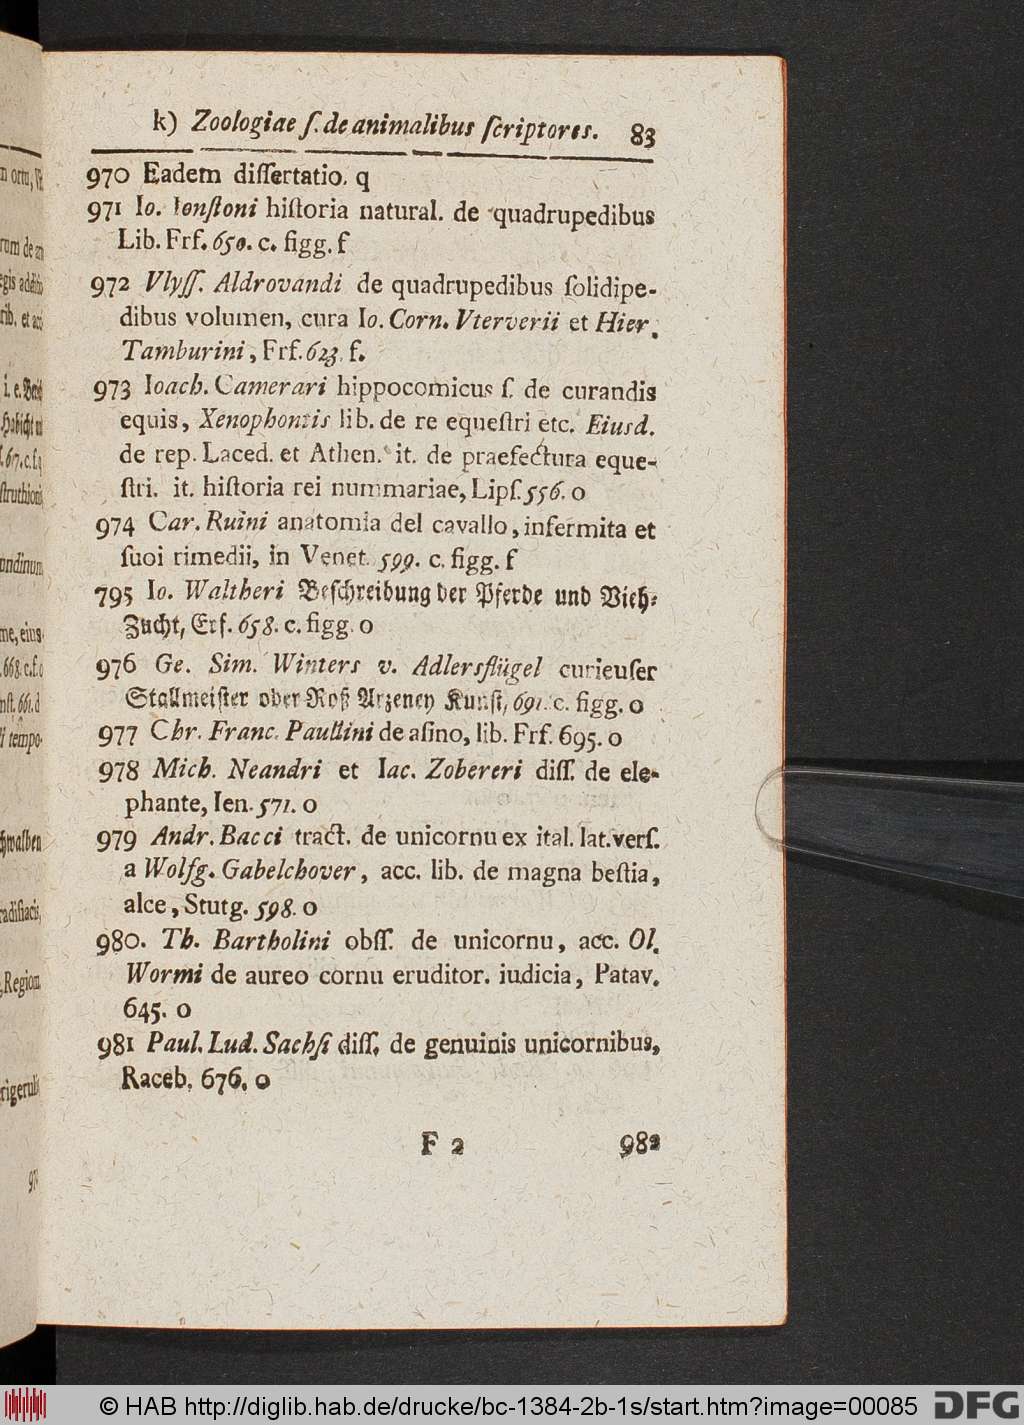 k) Zoologiae ſ. de animalibus ſcriptores. 83
970 Eadem diſſertatio. q
971 Io. Ionſtoni hiſtoria natural. de quadrupedibus
Lib. Frf. 650. c. figg. f
972 Vlyſſ. Aldrovandi de quadrupedibus ſolidipe-
dibus volumen, cura Io. Corn. Vterverii et Hier.
Tamburini, Frf. 623. f.
973 Ioach. Camerari hippocomicus ſ. de curandis
equis, Xenophontis lib. de re equeſtri etc. Eiusd.
de rep. Laced. et Athen. it. de praefectura eque-
ſtri. it. hiſtoria rei nummariae, Lipſ. 556. o
974 Car. Ruini anatomia del cavallo, infermita et
ſuoi rimedii, in Venet. 599. c. figg. f
795 Io. Waltheri Beſchreibung der Pferde und Vieh-
Zucht, Erf. 658. c. figg. o
976 Ge. Sim. Winters v. Adlersflügel curieuſer
Stallmeiſter oder Roß Arzeney Kunſt, 691. c. figg. o
977 Chr. Franc. Paullini de aſino, lib. Frf. 695. o
978 Mich. Neandri et Iac. Zobereri diſſ. de ele-
phante, Ien. 571. o
979 Andr. Bacci tract. de unicornu ex ital. lat. verſ.
a Wolfg. Gabelchover, acc. lib. de magna beſtia,
alce, Stutg. 598. o
980. Th. Bartholini obſſ. de unicornu, acc. Ol.
Wormi de aureo cornu eruditor. iudicia, Patav.
645. o
981 Paul. Lud. Sachſi diſſ. de genuinis unicornibus,
Raceb. 676. o
F 2 982
© HAB http://diglib.hab.de/drucke/bc-1384-2b-1s/start.htm?image=00085
DFG